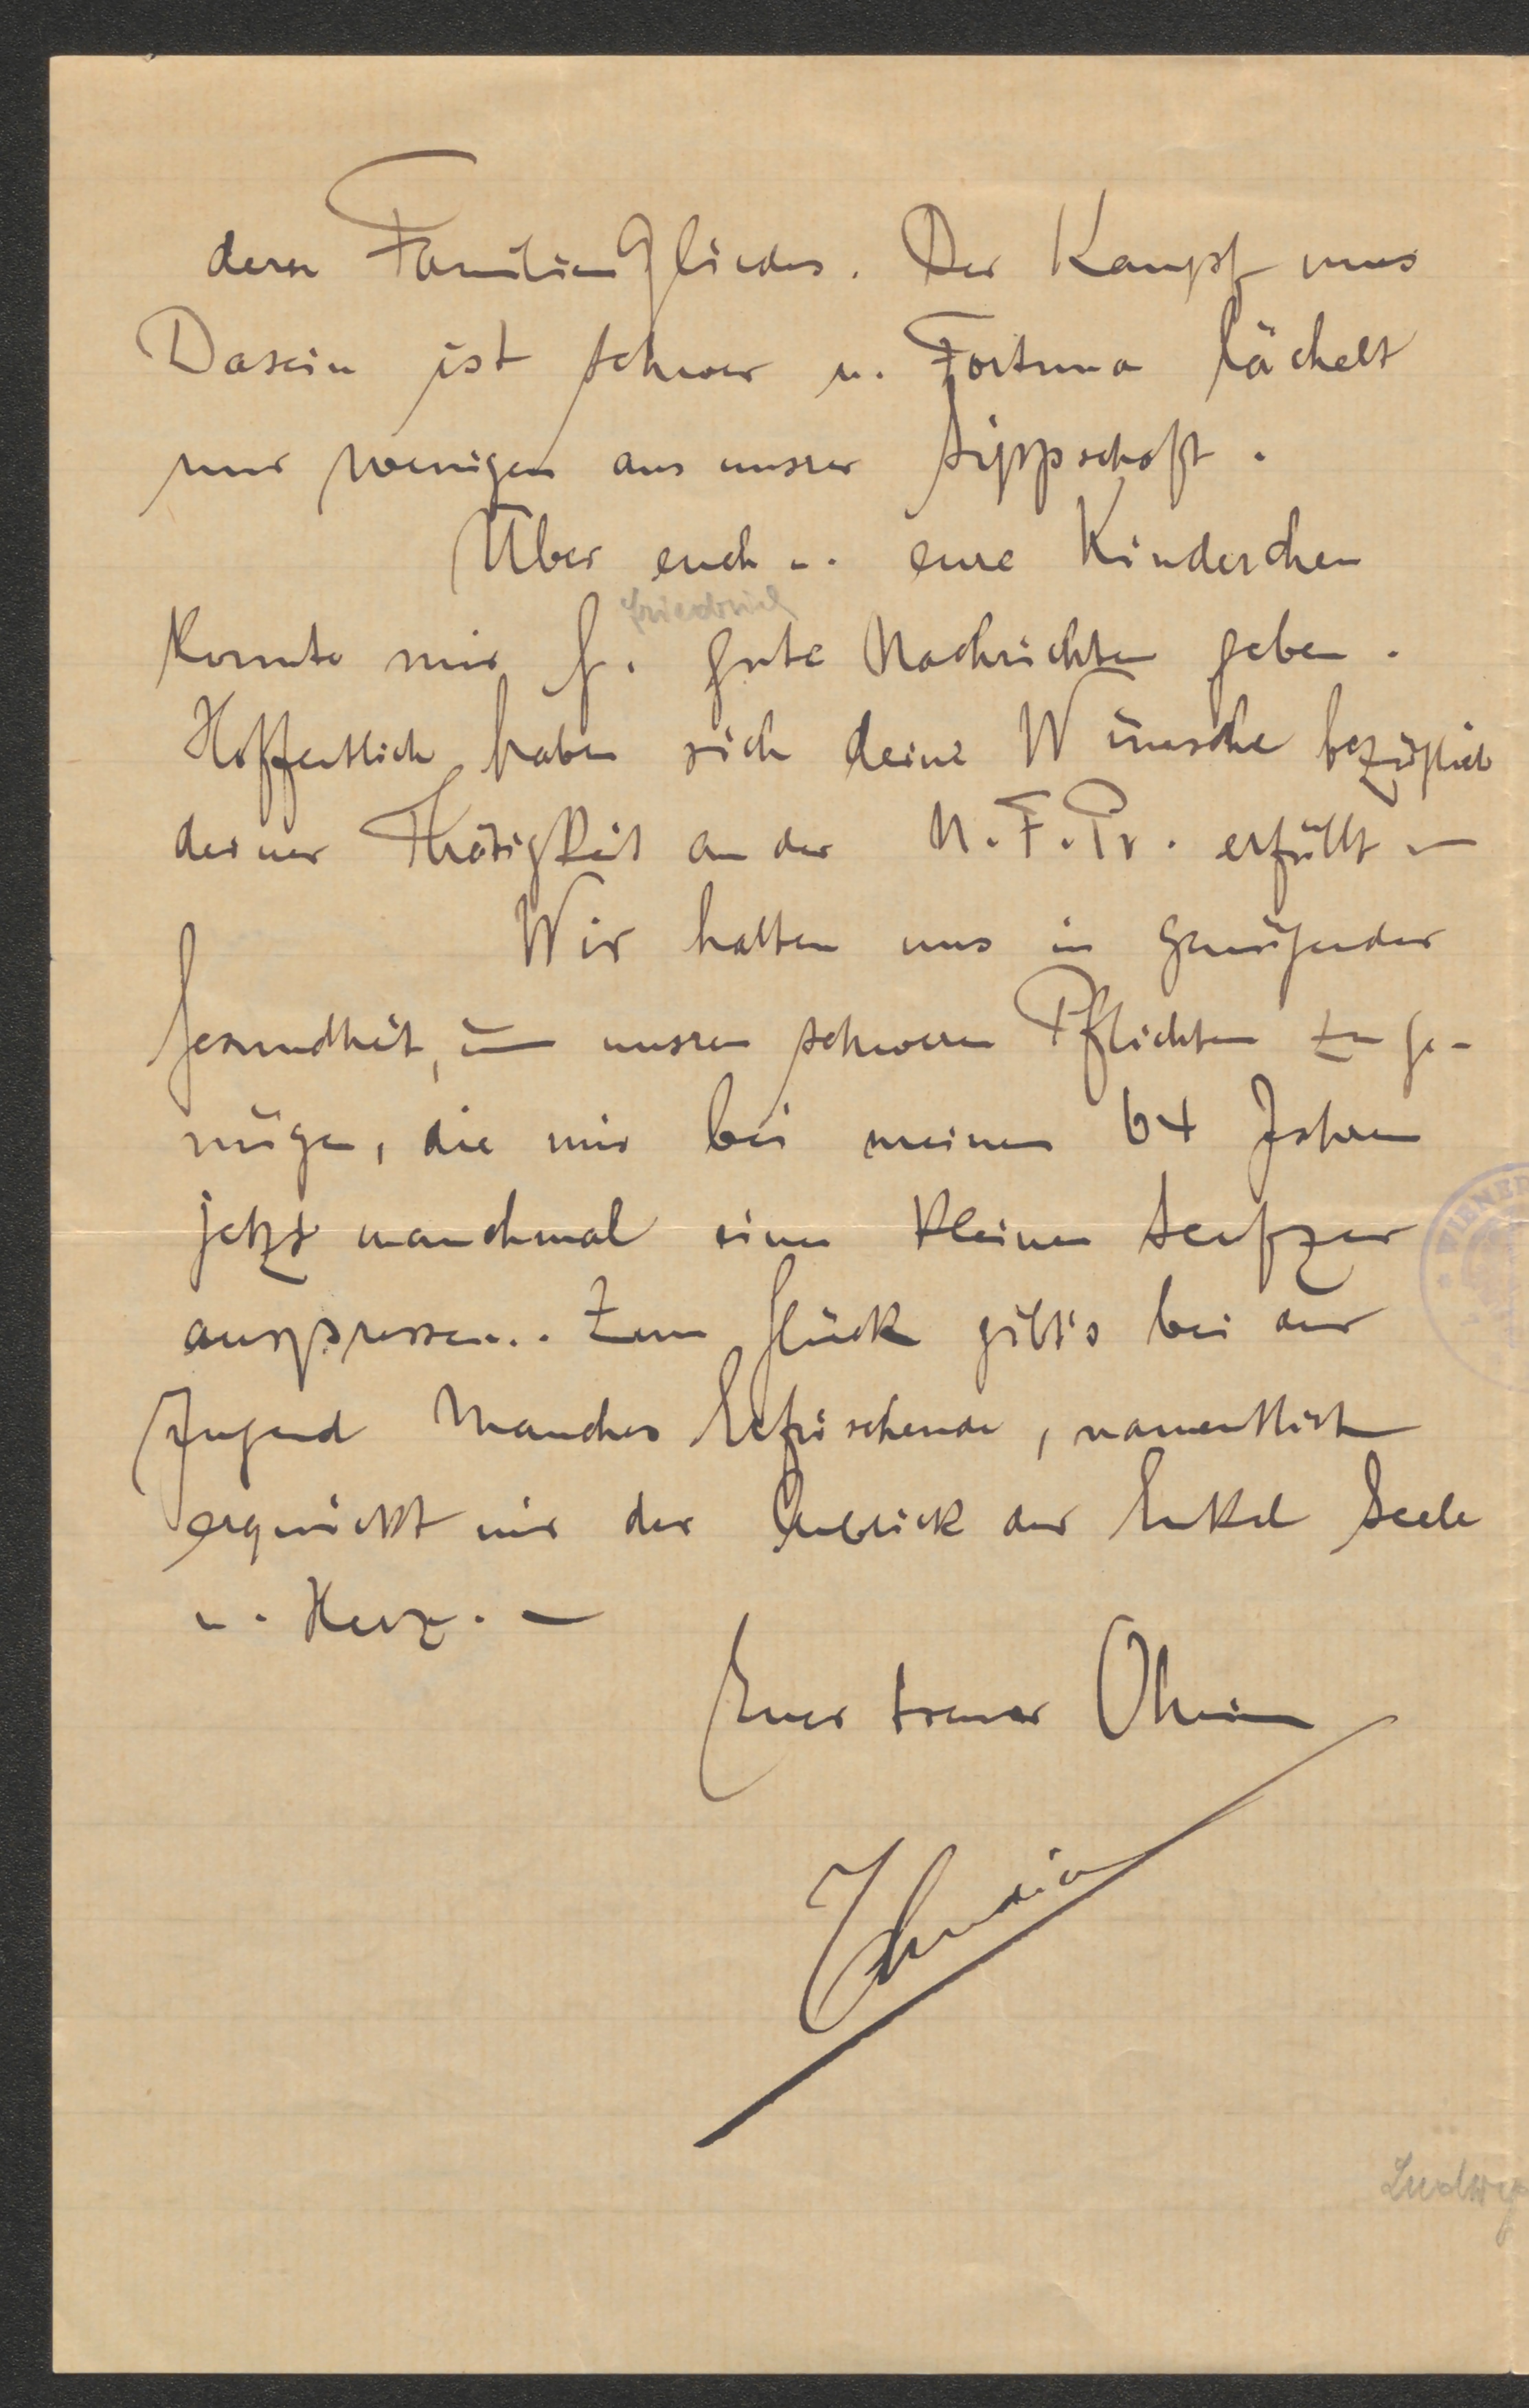 deren Familiengliedes. Der Kampf ums
Dasein ist schwer u. Fortuna lächelt
nur wenigen aus unsrer Sippschaft.
Über euch u. eure Kinderchen
Friedrich
konnte mir F. gute Nachrichten geben.
Hoffentlich haben sich deine Wünsche bezüglich
deiner Thätigkeit an der N. F. Pr. erfüllt –
Wir halten uns in genügender
Gesundheit, um unsren schweren Pflichten zu ge-
nügen, die mir bei meinen 64 Jahren
jetzt manchmal einen kleinen Seufzer
auspressen.. Zum Glück gibt's bei der
Jugend Manches Erfrischende, namentlich
erquickt mir der Anblick der Enkel Seele
u. Herz. –
Euer treuer Ohm
WIENER
Ludwig